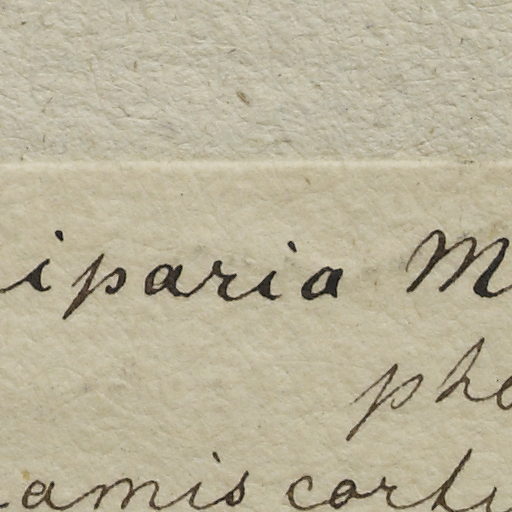 iparia M
phe
amis corti